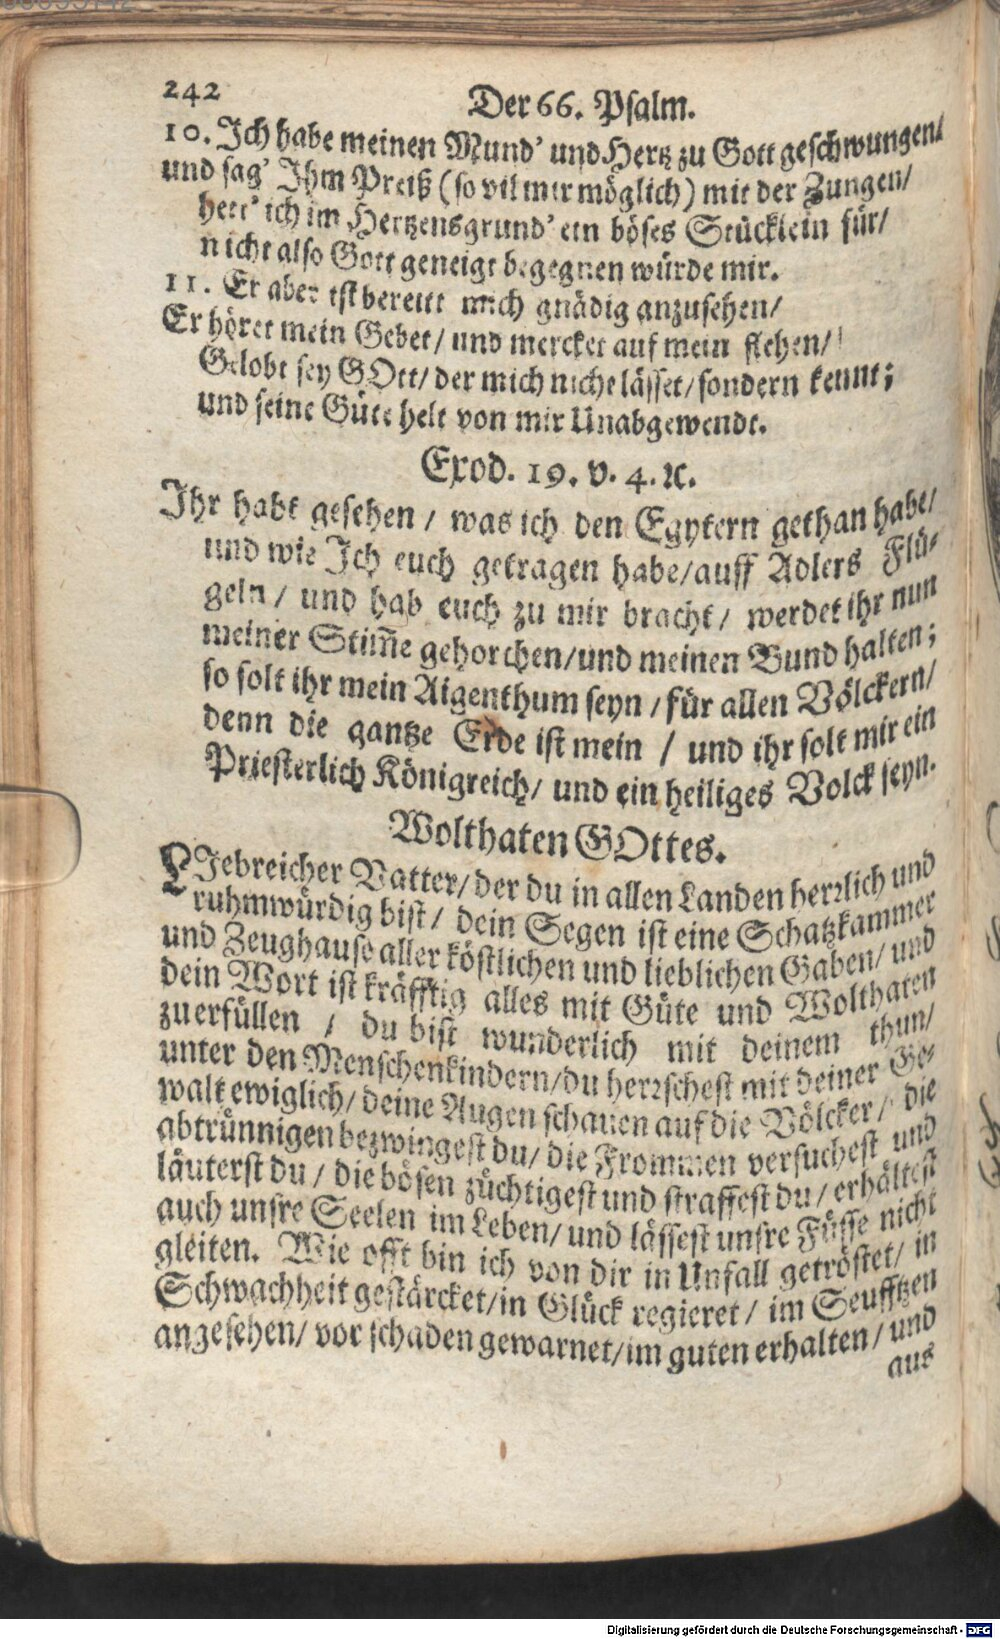 242
Der 66. Psalm.
10. Ich habe meinen Mund' und Hertz zu Gott geschwungen/
und sag' Ihm Preiß (so vil mir möglich) mit der Zungen/
hett' ich im Hertzensgrund' ein böses Stücklein für/
nicht also Gott geneigt begegnen würde mir.
11. Er aber ist bereitt mich gnädig anzusehen/
Er höret mein Gebet/ und mercket auf mein flehen/
Gelobt sey GOtt/ der mich nicht lässet/ sondern kennt;
und seine Güte helt von mir Unabgewendt.
Exod. 19. v. 4. ꝛc.
Ihr habt gesehen / was ich den Egyptern gethan habe/
und wie Ich euch getragen habe/ auff Adlers Flü-
geln / und hab euch zu mir bracht/ werdet ihr nun
meiner Stim̃e gehorchen/ und meinen Bund halten;
so solt ihr mein Aigenthum seyn / für allen Völckern/
denn die gantze Erde ist mein / und ihr solt mir ein
Priesterlich Königreich/ und ein heiliges Volck seyn.
Wolthaten GOttes.
LIebreicher Vatter/ der du in allen Landen herrlich und
ruhmwürdig bist/ dein Segen ist eine Schatzkammer
und Zeughause aller köstlichen und lieblichen Gaben/ und
dein Wort ist kräfftig alles mit Güte und Wolthaten
zu erfüllen / du bist wunderlich mit deinem thun/
unter den Menschenkindern/ du herrschest mit deiner Ge-
walt ewiglich/ deine Augen schauen auf die Völcker/ die
abtrünnigen bezwingest du/ die Frommen versuchest und
läuterst du / die bösen züchtigest und straffest du/ erhältest
auch unsre Seelen im Leben/ und lässest unsre Füsse nicht
gleiten. Wie offt bin ich von dir in Unfall getröstet/ in
Schwachheit gestärcket/ in Glück regieret / im Seufftzen
angesehen/ vor schaden gewarnet/ im guten erhalten/ und
aus
Digitalisierung gefördert durch die Deutsche Forschungsgemeinschaft - DFG